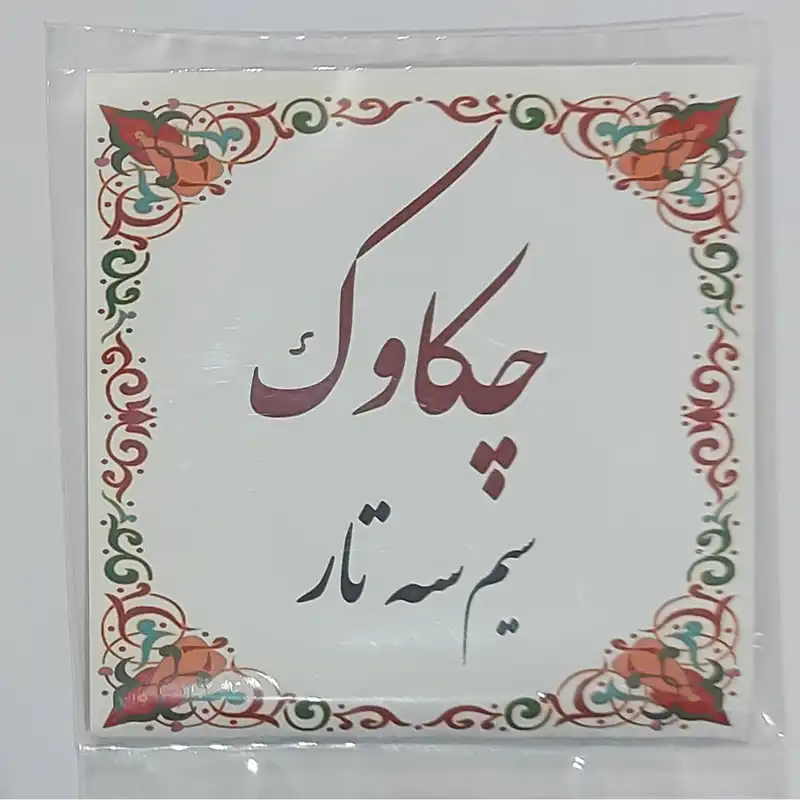 چکاوک
سیم سه تار